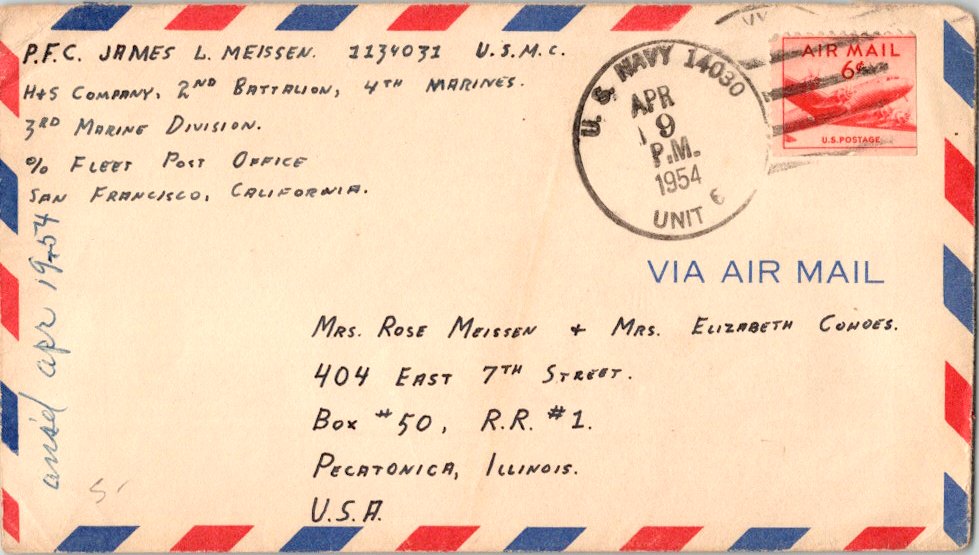 P.F.C. JAMES L. MEISSEN. 1134031 U.S.M.C.
H+S COMPANY, 2ND BATTALION, 4TH MARINES.
3RD MARINE DIVISION.
% FLEET POST OFFICE
SAN FRANCISCO, CALIFORNIA.
U.S. NAVY 14030
APR
9
P.M.
1954
UNIT
AIR MAIL
6¢
U.S. POSTAGE
VIA AIR MAIL
MRS. ROSE MEISSEN + MRS. ELIZABETH COHOES.
404 EAST 7TH STREET.
BOX #50, R.R. #1.
PECATONICA, ILLINOIS.
U.S.A.
ans'd apr 19-54